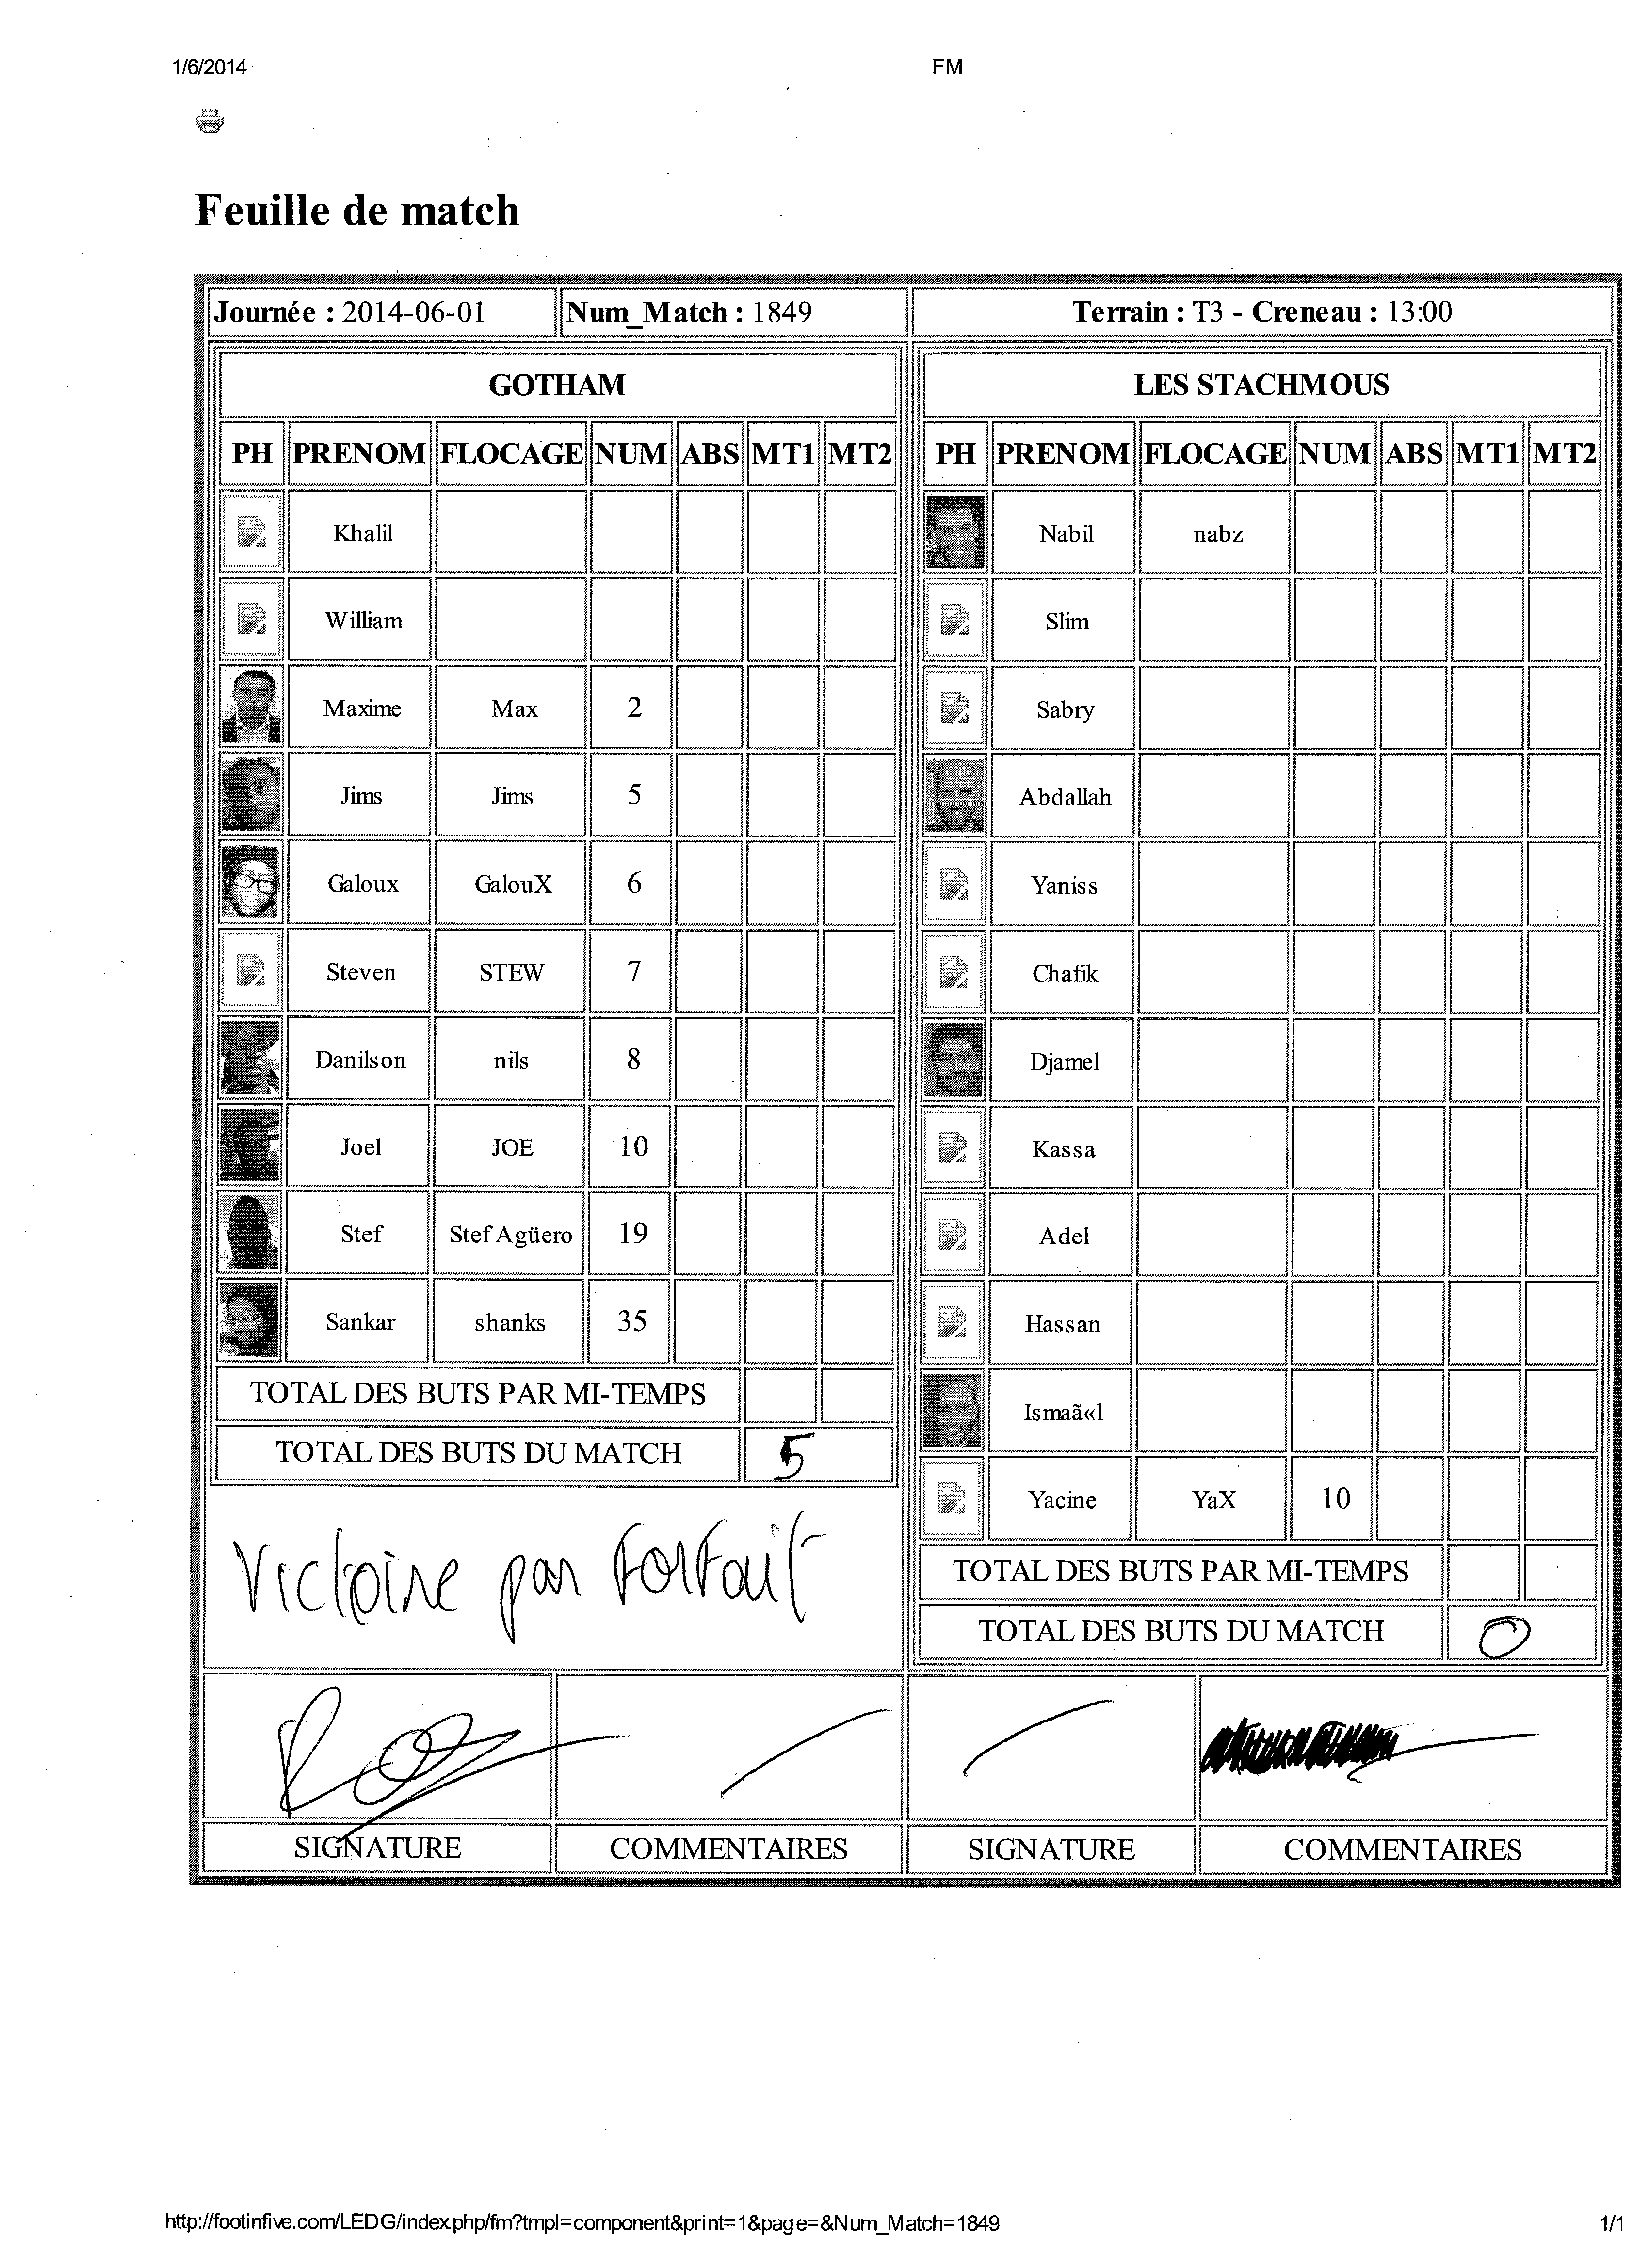 1/6/2014 FM
Feuille de match
Journée : 2014-06-01 Num_Match : 1849 Terrain : T3 - Creneau : 13:00
GOTHAM
PH PRENOM FLOCAGE NUM ABS MT1 MT2
Khalil
William
Maxime Max 2
Jims Jims 5
Galoux GalouX 6
Steven STEW 7
Danilson nils 8
Joel JOE 10
Stef Stef Agüero 19
Sankar shanks 35
TOTAL DES BUTS PAR MI-TEMPS
TOTAL DES BUTS DU MATCH 5
Victoire par Forfait
LES STACHMOUS
PH PRENOM FLOCAGE NUM ABS MT1 MT2
Nabil nabz
Slim
Sabry
Abdallah
Yaniss
Chafik
Djamel
Kassa
Adel
Hassan
Ismaã«l
Yacine YaX 10
TOTAL DES BUTS PAR MI-TEMPS
TOTAL DES BUTS DU MATCH 0
SIGNATURE COMMENTAIRES SIGNATURE COMMENTAIRES
http://footinfive.com/LEDG/index.php/fm?tmpl=component&print=1&page=&Num_Match=1849 1/1